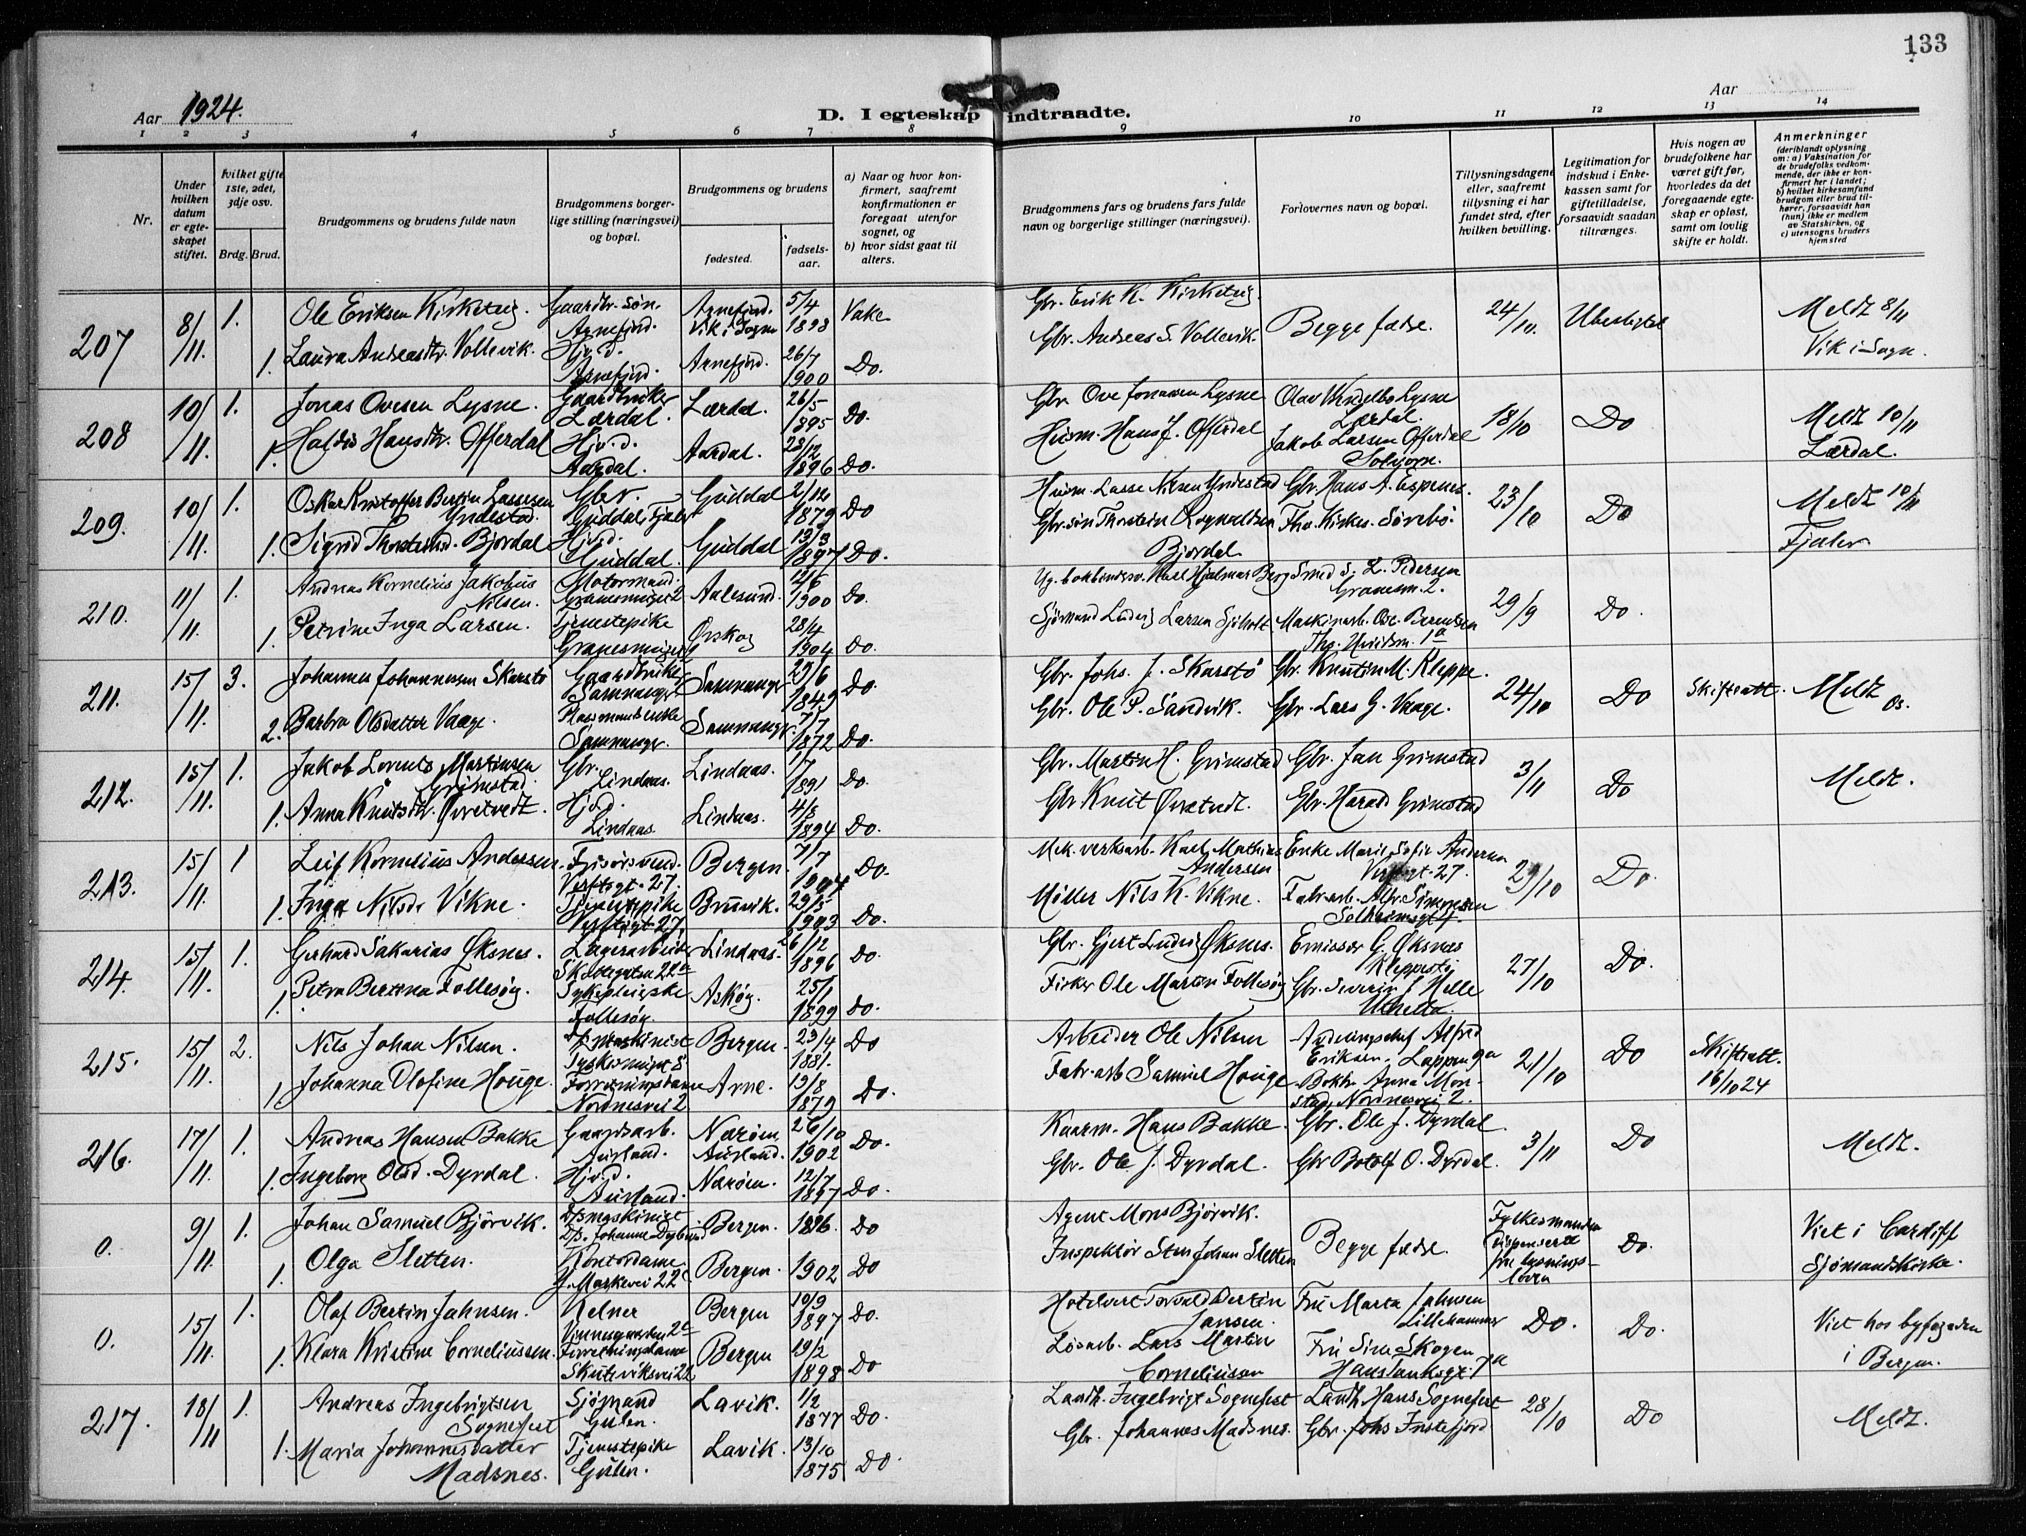 133
Aar 1924.
D. I egteskap indtraadte.
Aar
1 2 3 4 5 6 7 8 9 10 11 12 13 14
Nr.
Under hvilken datum er egteskapet stiftet.
hvilket gifte 1ste, 2det, 3dje osv.
Brdg. Brud.
Brudgommens og brudens fulde navn
Brudgommens borgerlige stilling (næringsvei) og bopæl.
Brudgommens og brudens
fødested.
fødselsaar.
a) Naar og hvor konfirmert, saafremt konfirmationen er foregaat utenfor sognet, og
b) hvor sidst gaat til alters.
Brudgommens fars og brudens fars fulde navn og borgerlige stillinger (næringsvei).
Forlovernes navn og bopæl.
Tillysningsdagene eller, saafremt tillysning ei har fundet sted, efter hvilken bevilling.
Legitimation for indskud i Enkekassen samt for giftetilladelse, forsaavidt saadan tiltrænges.
Hvis nogen av brudefolkene har været gift før, hvorledes da det foregaaende egteskap er opløst, samt om lovlig skifte er holdt.
Anmerkninger
(deriblandt oplysning om: a) Vaksination for de brudefolks vedkommende, der ikke er konfirmert her i landet; b) hvilket kirkesamfund brudgom eller brud tilhører, forsaavidt han (hun) ikke er medlem av Statskirken, og c) utensogns bruders hjemsted
207 8/11. 1. Ole Eriksen Kirketeig. Gaardbr. søn. Arnefjord. Arnefjord. Vik i Sogn 5/4 1898 Gbr. Erik K. Kirketeig. Begge fædre. 24/10. Meldt 8/11
1. Laura Andreasdtr. Vollevik. Hjv.d. Arnefjord. Arnefjord. 26/7 1900 Do. Gbr. Andreas S. Vollevik. Vik i Sogn.
208 10/11. 1. Jonas Ovesen Lysne. Gaardbruker Lærdal. Lærdal. 26/5 1895 Do. Gbr. Ove Jonassen Lysne Lysne Lærdal. 18/10 Do Meldt 10/11
1. Haldis Hansdtr. Offerdal Hjv.d. Aardal. Aardal. 23/12 1896 Do. Husm. Hans J. Offerdal Jakob Larsen Offerdal Solvorn. Lærdal.
209. 10/11. 1. Oskar Kristoffer Bertin Lassesen Yndestad. Gbr. Guddal, Fjaler Guddal 2/12 1879 Do Husm. Lasse Nilsen Yndestad Gbr. Hans A. Espenes. 23/10 Do Meldt 10/11
1. Sigrid Thorsteinsd. Bjordal Hjv.d. Guddal. Guddal 13/3 1897 Do. Gbr.søn Thorstein Rognaldsen Bjordal Tho. Kirkes. Sørebø. Fjaler
210. 11/11. 1. Andreas Kornelius Jakobus Nilsen. Motormand. Aalesund. 12/6 1900 Do. Karl Hjalmar Berg Smed S. L. Pedersen 29/9 Do.
1. Petrine Inga Larsen. Tjenestepike Ørskog 28/4 1904 Do. Sjømand Ludvig Larsen Sjøholt
211. 15/11. 3. Johannes Johannessen Skarstø Gaardbruker Samnanger Samnanger 29/6 1849 Do. Gbr. Johs. J. Skarstø Gbr. Knut M. Kleppe. 24/10 Do Skifteatt. Meldt Os.
2. Barbra Olsdatter Vaage. Samnanger. Samnanger. 7/7 1872 Do. Gbr. Ole P. Sandvik. Gbr. Lars G. Vaage.
212. 15/11. 1. Jakob Lorents Martinsen Grimstad. Gbr. Lindaas. Lindaas. 1891 Do. Gbr. Martin H. Grimstad Gbr. Jan Grimstad 3/11 Do Meldt.
1. Anna Knutsdtr. Øvretvedt. Hjv.d. Lindaas. Lindaas. 1894 Do. Gbr. Knut Øvretvedt. Gbr. Harald Grimstad
213. 15/11. 1 Leif Kornelius Andersen. Frisørsvend. Verftsgt. 27. Bergen. 7/7 Do. Mek. verksarb. Karl Mathias Andersen Enke Marie Sofie Andersen Verftsgt. 27. 29/10 Do.
1. Inga Nilsdr. Vikne. Tjenestepike Verftsgt 27. Bruvik. 29/5 1903 Do. Møller Nils K. Vikne. Fabr.arb. Alfr. Simonsen Solheimsgt 4.
214. 15/11. 1. Gerhard Sakarias Øksnes. Lagerarbeider Skottegaten 22a Lindaas. 26/12 1896 Do. Gbr. Gjert Ludvig Øksnes. Emissær G. Øksnes Kleppestø 27/10 Do.
1. Petra Bertina Follesøy. Sykepleierske Follesøy. Askøy. 25/1 1899 Do. Fisker Ole Martin Follesøy Gbr. Severin J. Melle
215. 15/11. 2. Nils Johan Nilsen. Maskinist Bergen. 23/4 1881. Do Arbeider Ole Nilsen Avdelingschef Alfred Eriksen. Lappen 9a 21/10 Do Skifteatt. 16/10 24
1. Johanna Olofine Houge. Forretningsdame Nordnesvei 2 Arne. 13/8 1879 Do. Fabr.arb Samuel Houge Bokh. Anna Monstad, Nordnesvei 2.
216. 17/11. 1. Andreas Hansen Bakke Gaardsarb. Aurland. Nærøen Aurland. 26/10 1902 Do. Kaarm. Hans Bakke. Gbr. Ole J. Dyrdal. 3/11 Do Meldt.
1. Ingeborg Olsd. Dyrdal. Hjv.d. Aurland. Nærøen. 12/7 1897 Do. Gbr. Ole J. Dyrdal. Gbr Botolf O. Dyrdal.
0. 9/11. 1. Johan Samuel Bjørvik. D/smaskinist Bergen. 1896. Do Agent Mons Bjørvik. Begge fædre. Fylkesmanden dispensert fra lysnings- Do. Viet i Cardiff
1. Olga Sletten. Kontordame Bergen. 1902 Do Inspektør Sten Johan Sletten Sjømandskirke.
0. 15/11. 1. Olaf Bertin Jahnsen. Kelner Bergen 10/9 1897 Do. Hotelvert Torvald Bertin Jansen. Fru Marta Jahnsen Lillehammer Do. Do. Viet hos byfogeden
1. Klara Kristine Corneliussen. Forretningsdame Skuteviksvei 22 Bergen 19/2 1898 Do Løsarb. Lars Martin Corneliussen Fru Sina Skogen i Bergen.
217. 18/11 1. Andreas Ingebrigtsen Sognefest Sjømand Gulen. Lavik. 1/2 1877 Do. Landh. Ingebrigt Sognefest Landh. Hans Sognefest 28/10 Do Meldt.
1. Maria Johannesdatter Madsnes. Tjenestepike Gulen. Lavik. 13/10 1875 Do. Gbr. Johannes Madsnes. Gbr. Johs Instefjord